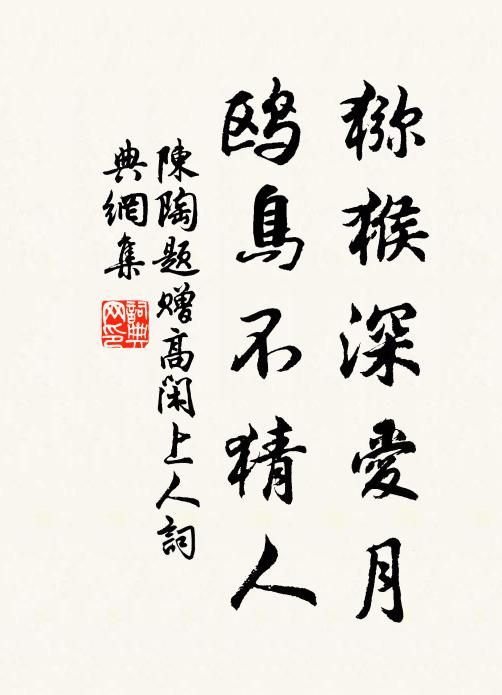 猕猴深愛月
鸥鳥不猜人
陳陶題赠高闲上人詞
典網集
詞典网印